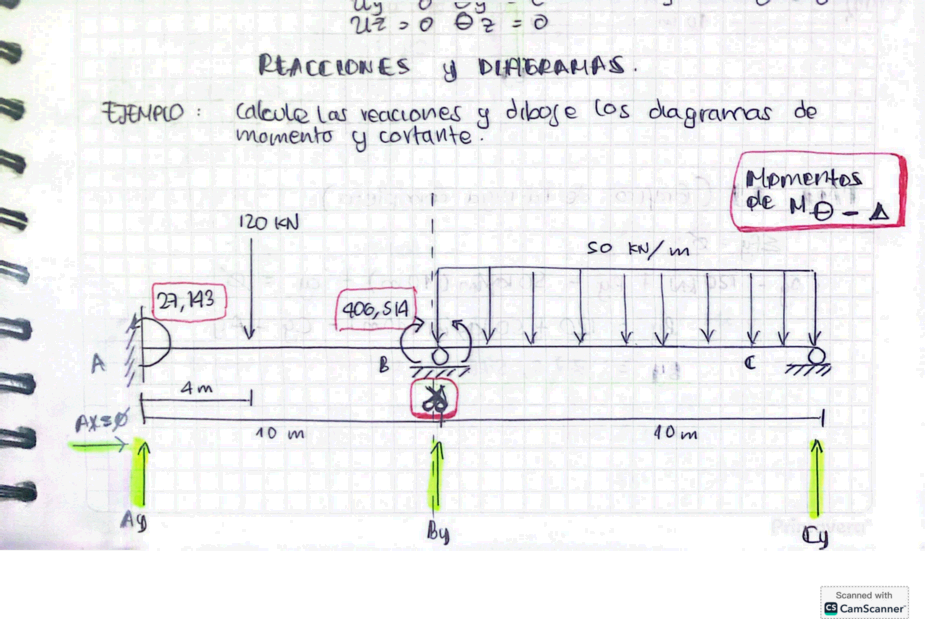 uz = 0 θz = 0
REACCIONES y DIAGRAMAS.
EJEMPLO: Calcule las reaciones y diboje los diagramas de
momento y cortante.
Momentos
de Mθ - Δ
120 KN
50 KN/m
27,143
406,514
A
B
C
4m
Ax=∅
10 m
10 m
Ay
By
Cy
Primavera
Scanned with
CS CamScanner